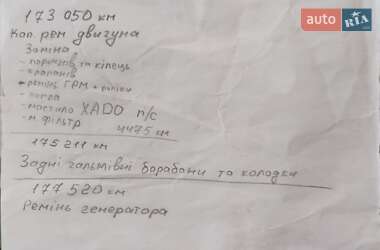 auto RIA
173 050 км
Кап. рем двигуна
Заміна
- поршнів та кілець
- клапанів
- ремінь ГРМ + ролики
- помпа
- мастило XADO п/с
- м. фільтр 4475 км
175 211 км
Задні гальмівні барабани та колодки
177 520 км
Ремінь генератора